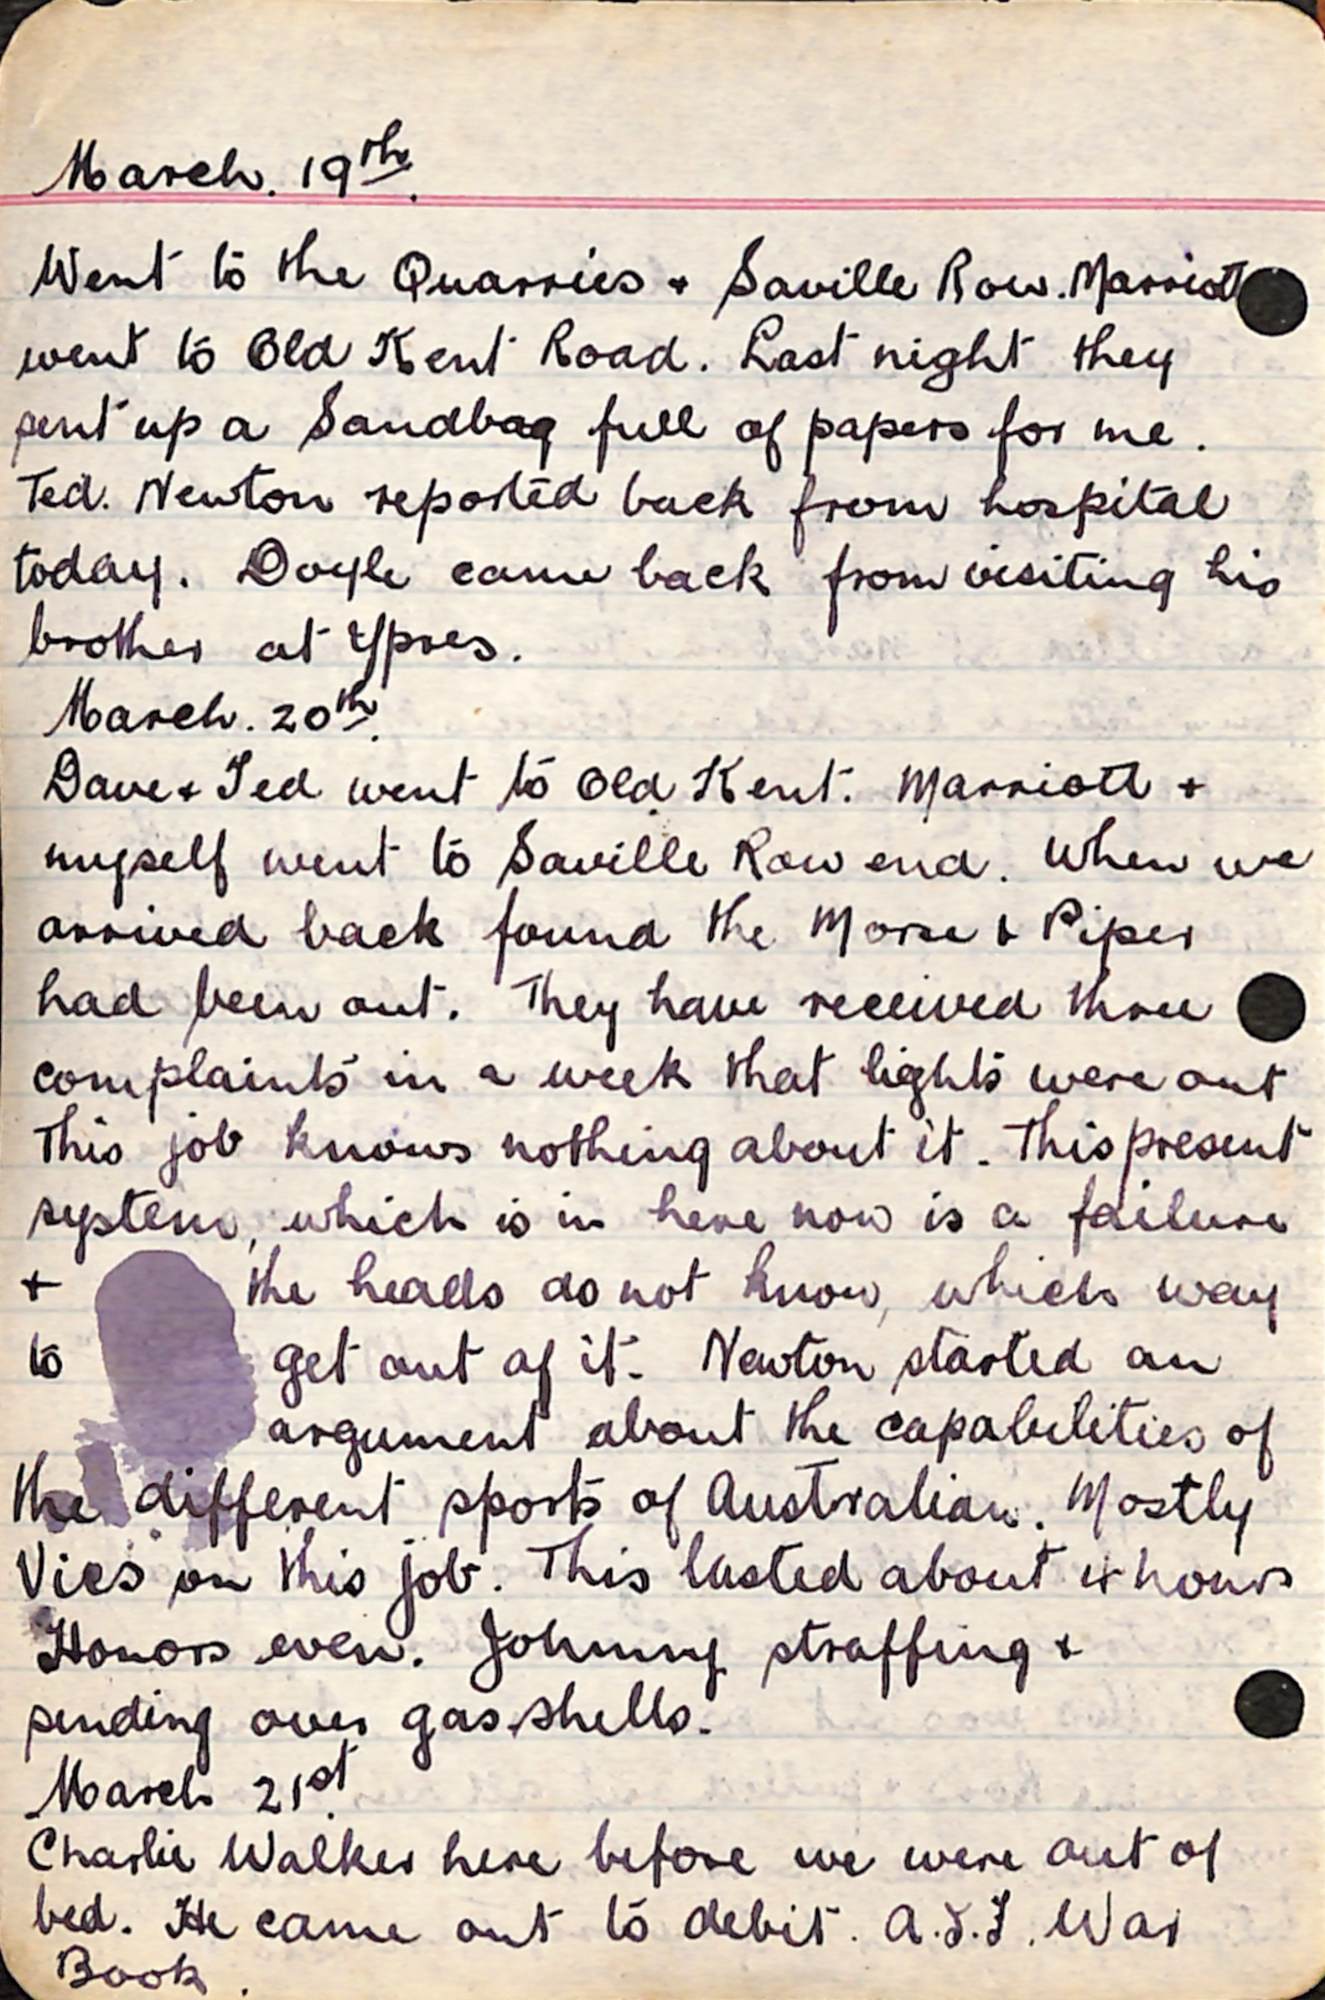 March. 19th.
Went to the Quarries + Saville Row. Marriott
went to Old Kent Road. Last night they
sent up a Sandbag full of papers for me.
Ted. Newton reported back from hospital
today. Doyle came back from visiting his
brother at Ypres.
March. 20th.
Dave + Ted went to Old Kent. Marriott +
myself went to Saville Row end. When we
arrived back found the Morse + Piper
had been out. They have received three
complaints in a week that lights were out
This job knows nothing about it. This present
system, which is in here now is a failure
+ the heads do not know, which way
to get out of it. Newton started an
argument about the capabilities of
the different sports of Australian. Mostly
Vics on this job. This lasted about 4 hours
Honors even. Johnny straffing +
sending over gas shells.
March 21st.
Charlie Walker here before we were out of
bed. He came out to debit. A.I.F. War
Book.